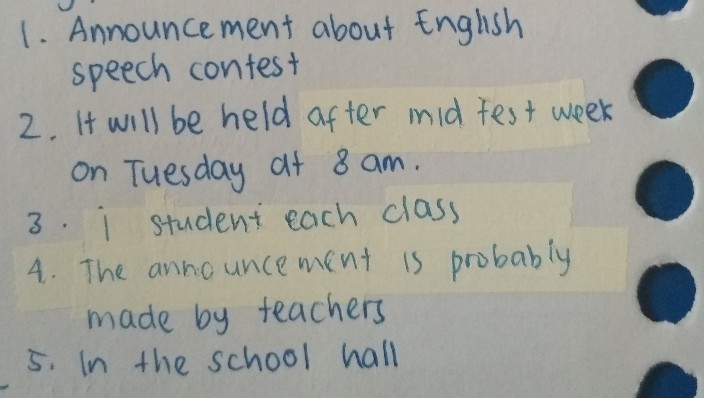 1. Announcement about English
speech contest
2. It will be held after mid test week
on Tuesday at 8 am.
3. 1 student each class
4. The announcement is probably
made by teachers
5. In the school hall